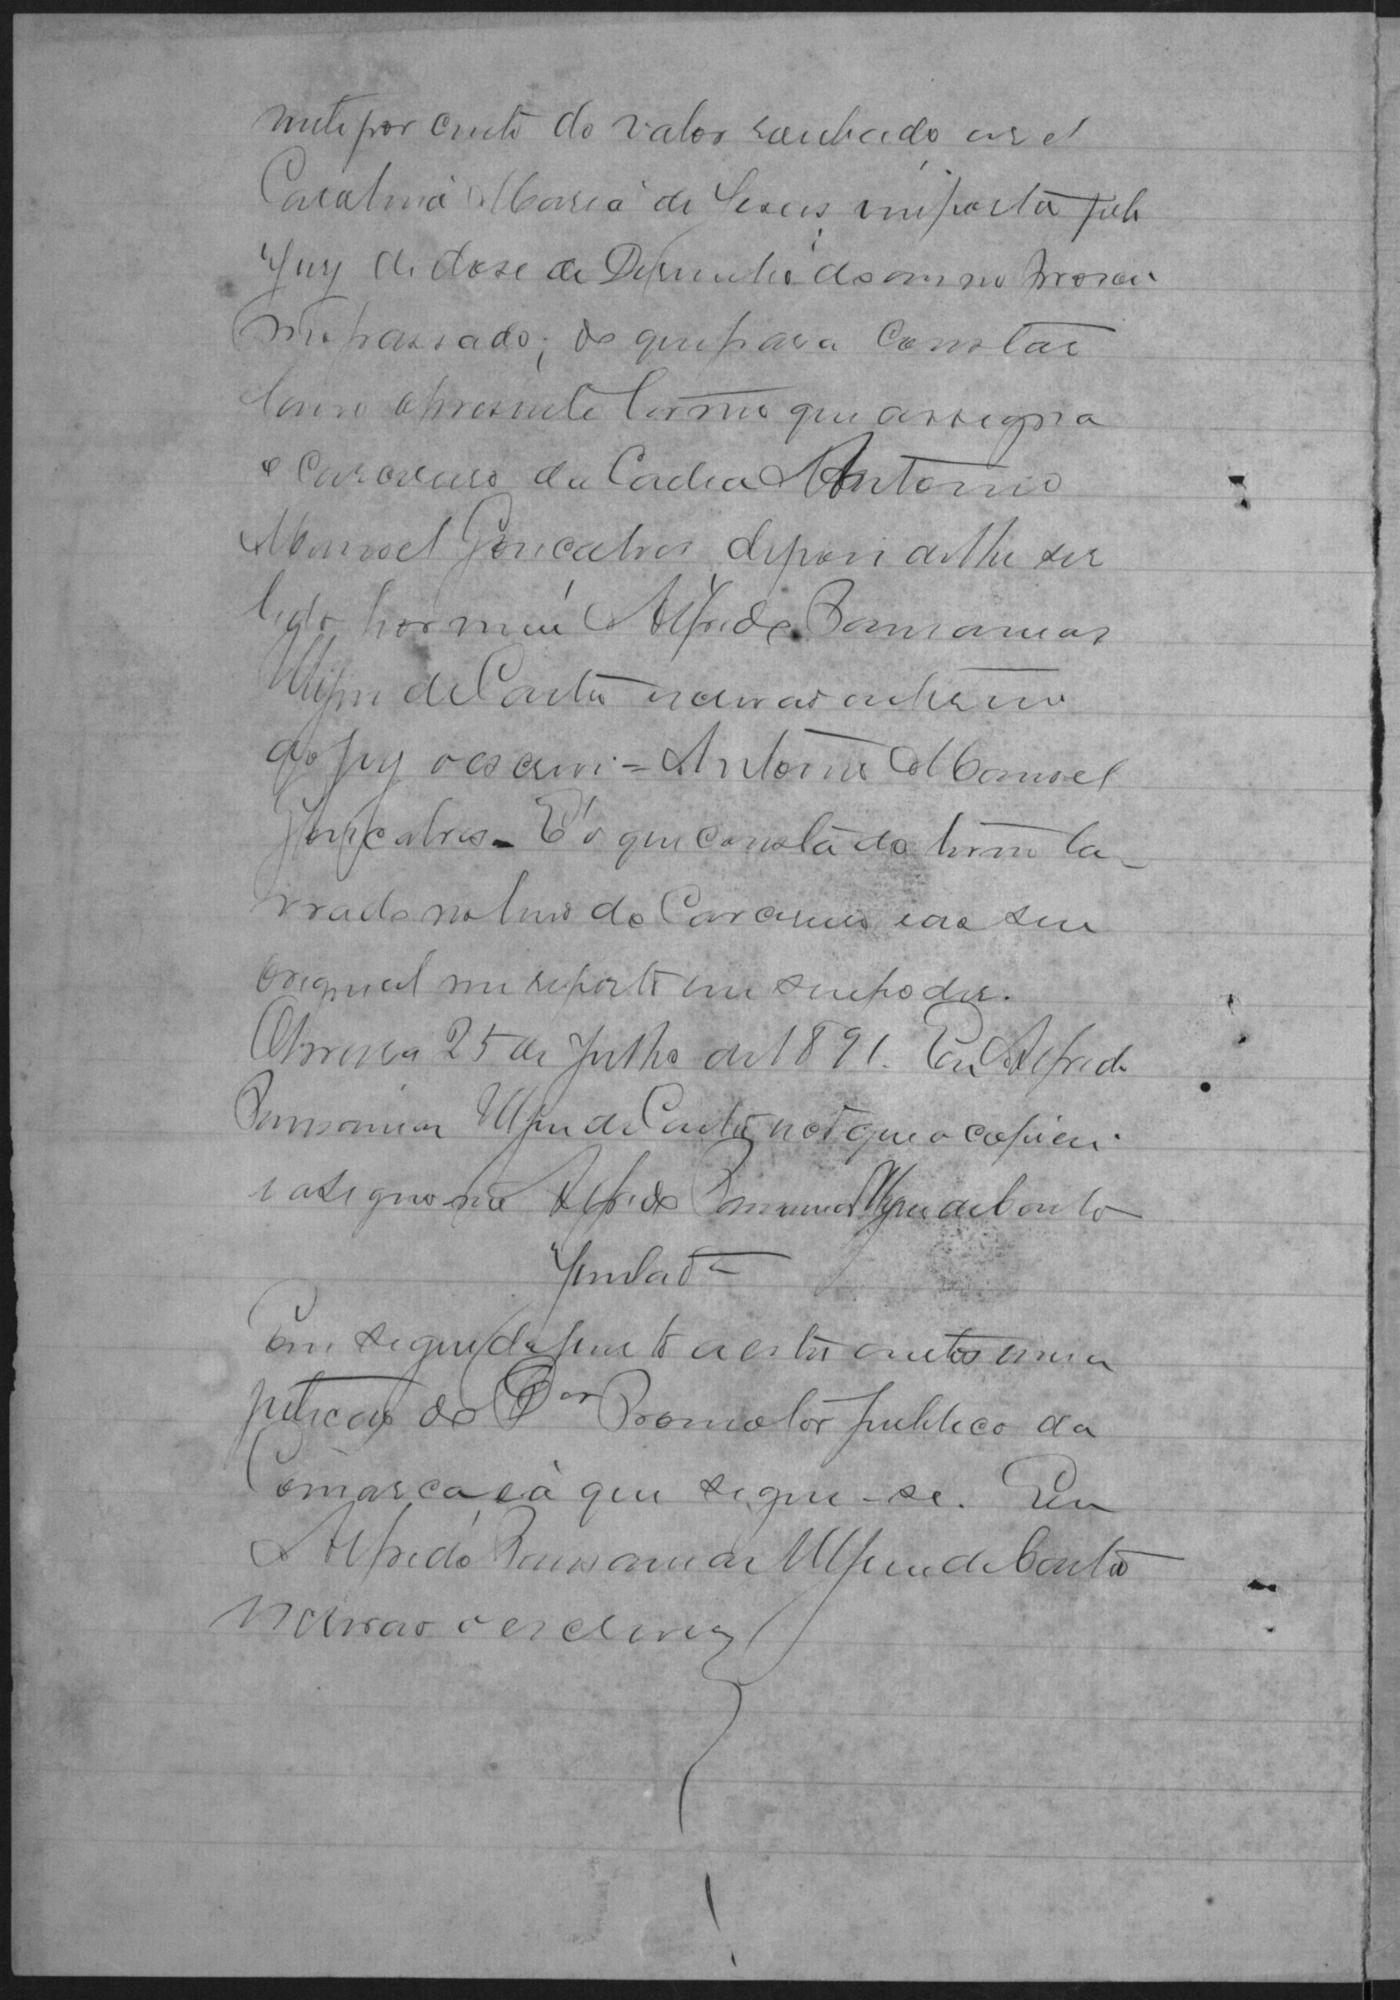 vinte por cento do valor roubado
Carolina Maria de Jesus, imposta pelo
Jury de dose de Desembro do anno proxi
mo passado; do que para constar
lavro o presente termo que assigna
o carcereiro da Cadea Antonio
Manoel Gonçalves, depois de lhe ser
lido por mim Alfredo Pausanias
de Couto escrivão interino
do jury o escrevi = Antonio Manoel
Gonçalves - É o que consta do termo la-
vrado no livro do Carcereiro e ao seu
original me reporto em seu poder.
25 de Julho de 1891. Eu Alfredo
Pausanias de Couto escrivão que o copiei
e assigno Alfredo Pausanias de Couto
Juntada
Em seguida junto a estes autos uma
petição do Dor Promotor publico da
Comarca e é a que segue-se. Eu
Alfredo Pausanias de Couto
escrivão o escrevi